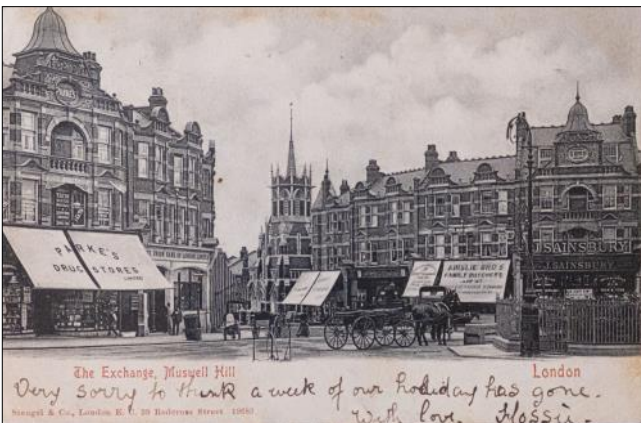 PARKE'S
DRUG STORES
LIMITED
AINSLIE BROS
FAMILY BUTCHERS
J. SAINSBURY
J. SAINSBURY
The Exchange, Muswell Hill
London
Very sorry to think a week of our holiday has gone.
With love. Flossie.
Stengel & Co., London E. C. 39 Redcross Street